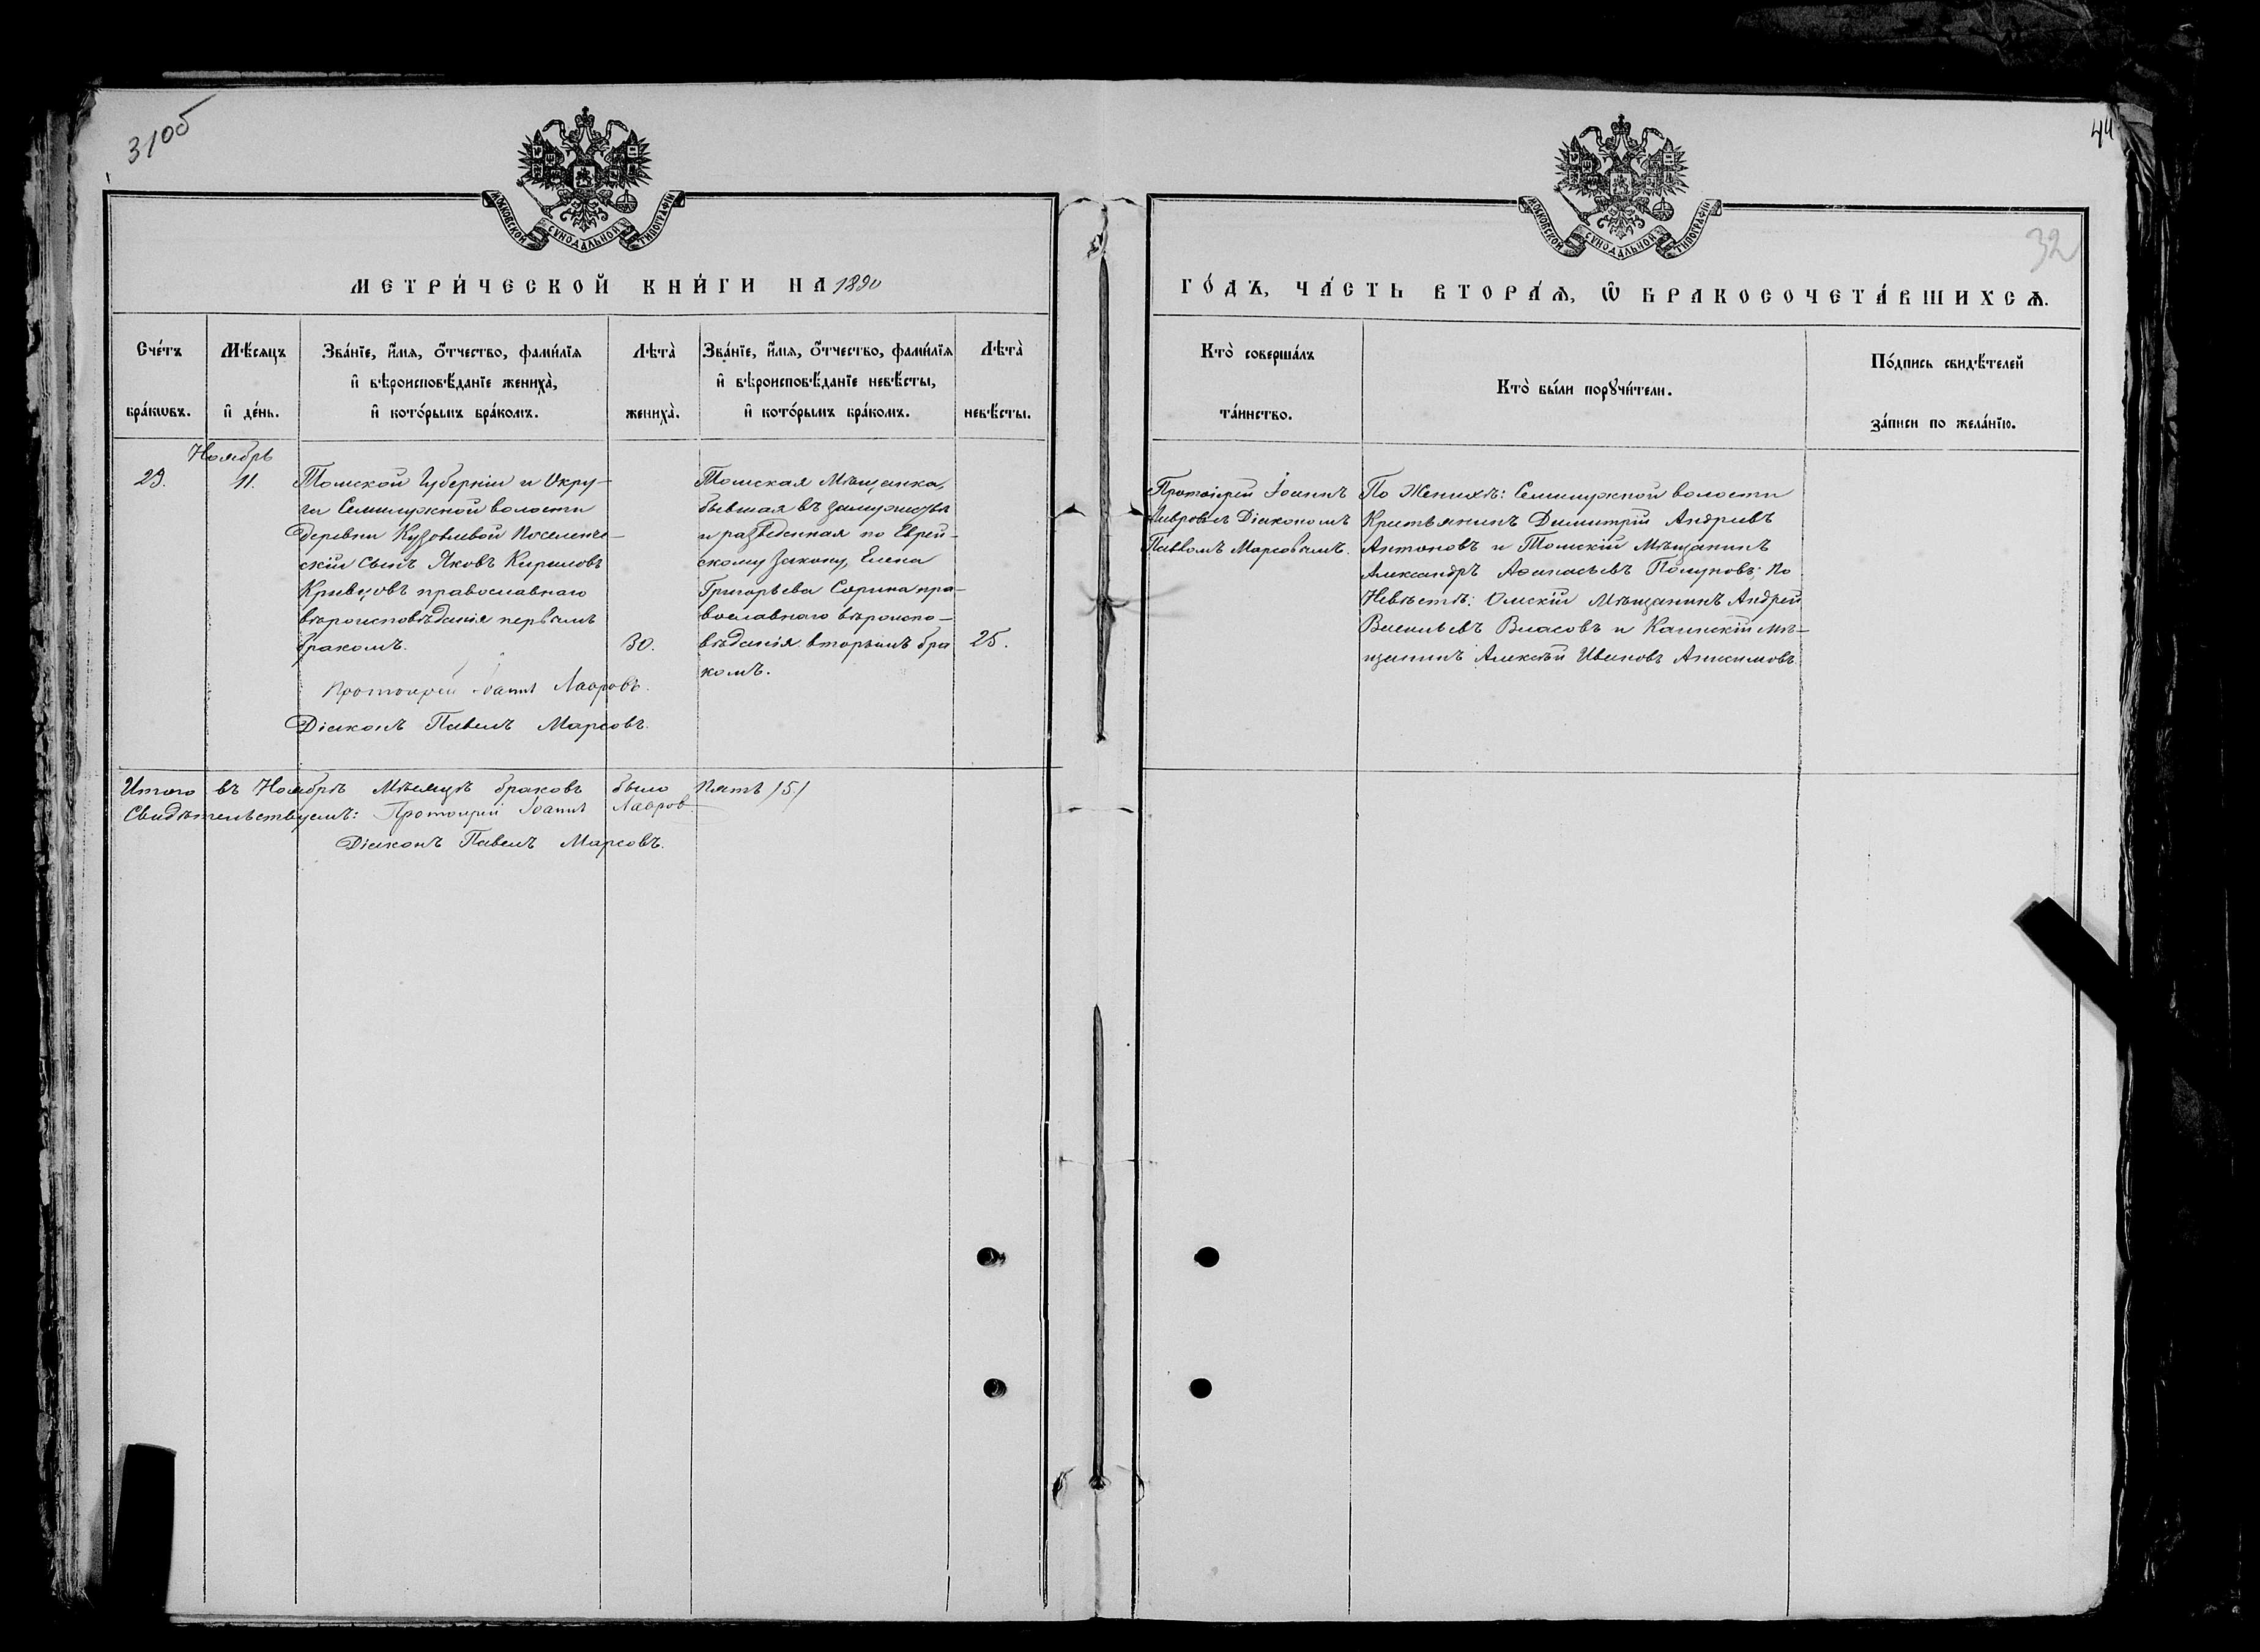 310б
44
32
МОСКОВСКОЙ СУНОДАЛЬНОЙ ТИПОГРАФІИ
МЕТРИ́ЧЕСКОЙ КНИ́ГИ НА 1890
Сче́тъ бра́кѡвъ.
Мѣ́сяцъ и҆ де́нь.
Зва́нїе, и҆́мѧ, ѻ҆́тчество, фами́лїѧ
и҆ вѣроисповѣ́данїе жениха̀,
и҆ кото́рымъ бра́комъ.
Лѣта̀ жениха̀.
Зва́нїе, и҆́мѧ, ѻ҆́тчество, фами́лїѧ
и҆ вѣроисповѣ́данїе невѣ́сты,
и҆ кото́рымъ бра́комъ.
Лѣта̀ невѣ́сты.
Ноябрь
29.
11.
Томской Губерніи и Окру-
ги Семилужной волости
деревни Кузовлевой Поселенче-
скій сынъ Яковъ Кириловъ
Кривцовъ православнаго
вѣроисповѣданія первымъ
бракомъ.
30.
Томская Мѣщанка,
бывшая въ замужствѣ
и разведенная по Еврей-
скому закону, Елена
Григорьева Сорина пра-
вославнаго вѣроиспо-
вѣданія вторымъ бра
комъ.
25.
Протоіерей Іоаннъ Лавровъ.
Діаконъ Павелъ Марсовъ.
Итого въ Ноябрѣ Мѣсяцѣ браковъ было Пять /5/
Свидѣтельствуемъ: Протоіерей Іоаннъ Лавровъ
Діаконъ Павелъ Марсовъ.
МОСКОВСКОЙ СУНОДАЛЬНОЙ ТИПОГРАФІИ
ГО́ДЪ, ЧА́СТЬ ВТОРА́Ѧ, Ѽ БРАКОСОЧЕТА́ВШИХСѦ.
Кто̀ соверша́лъ
та́инство.
Кто̀ бы́ли порꙋчи́тели.
По́дпись свидѣ́телей
за́писи по жела́нїю.
Протоіерей Іоаннъ
Лавровъ съ Діакономъ
Павломъ Марсовымъ.
По Женихѣ: Семилужной волости
Крестьянинъ Димитрій Андреевъ
Антоновъ и Томскій Мѣщанинъ
Александръ Аѳанасьевъ Полуновъ; по
Невѣстѣ: Омскій Мѣщанинъ Андрей
Васильевъ Власовъ и Каинскій мѣ-
щанинъ Алексѣй Ивановъ Анисимовъ